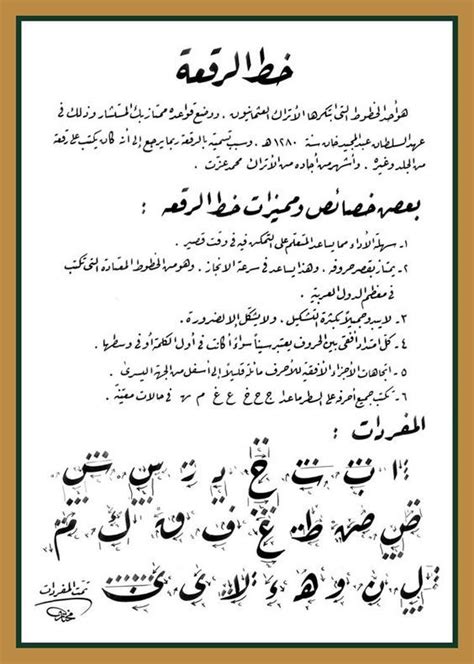 خط الرقعة
هو أحد الخطوط التى ابتكرها الأتراك العثمانيون . ووضع قواعده ممتاز بك المستشار وذلك فى
عهد السلطان عبد المجيد خان سنة ١٢٨٠ هـ . وسبب تسميته بالرقعة ربما يرجع إلى أنه كان يكتب على رقعة
من الجلد وغيره . وأشهر من أجاده من الأتراك محمد عزت .
بعض خصائص ومميزات خط الرقعه :
١- سهلة الأداء مما يساعد المتعلم على التمكن فيه فى وقت قصير .
٢- يمتاز بقصر حروفه . وهذا يساعد فى سرعة الانجاز . وهو من الخطوط المعتادة التى تكتب
فى معظم الدول العربية .
٣- لا يبدو جميلاً بكثرة التشكيل . ولا يشكّل إلا لضرورة .
٤- كل امتداد أفقى بين الحروف يعتبر سيناً سواءً أكانت فى أول الكلمة أو فى وسطها .
٥- اتجاهات الأجزاء الأفقية للأحرف مائلة قليلاً إلى أسفل من الجهة اليسرى .
٦- تكتب جميع أحرفه على السطر ماعدا ج ح خ ع غ م ه فى حالات معيّنة .
المفردات :
ا ب ث خ د ر س ش
ض ص ط غ ف ق ك م
ل ن و ه ء لا ى ئ
تمت المفردات